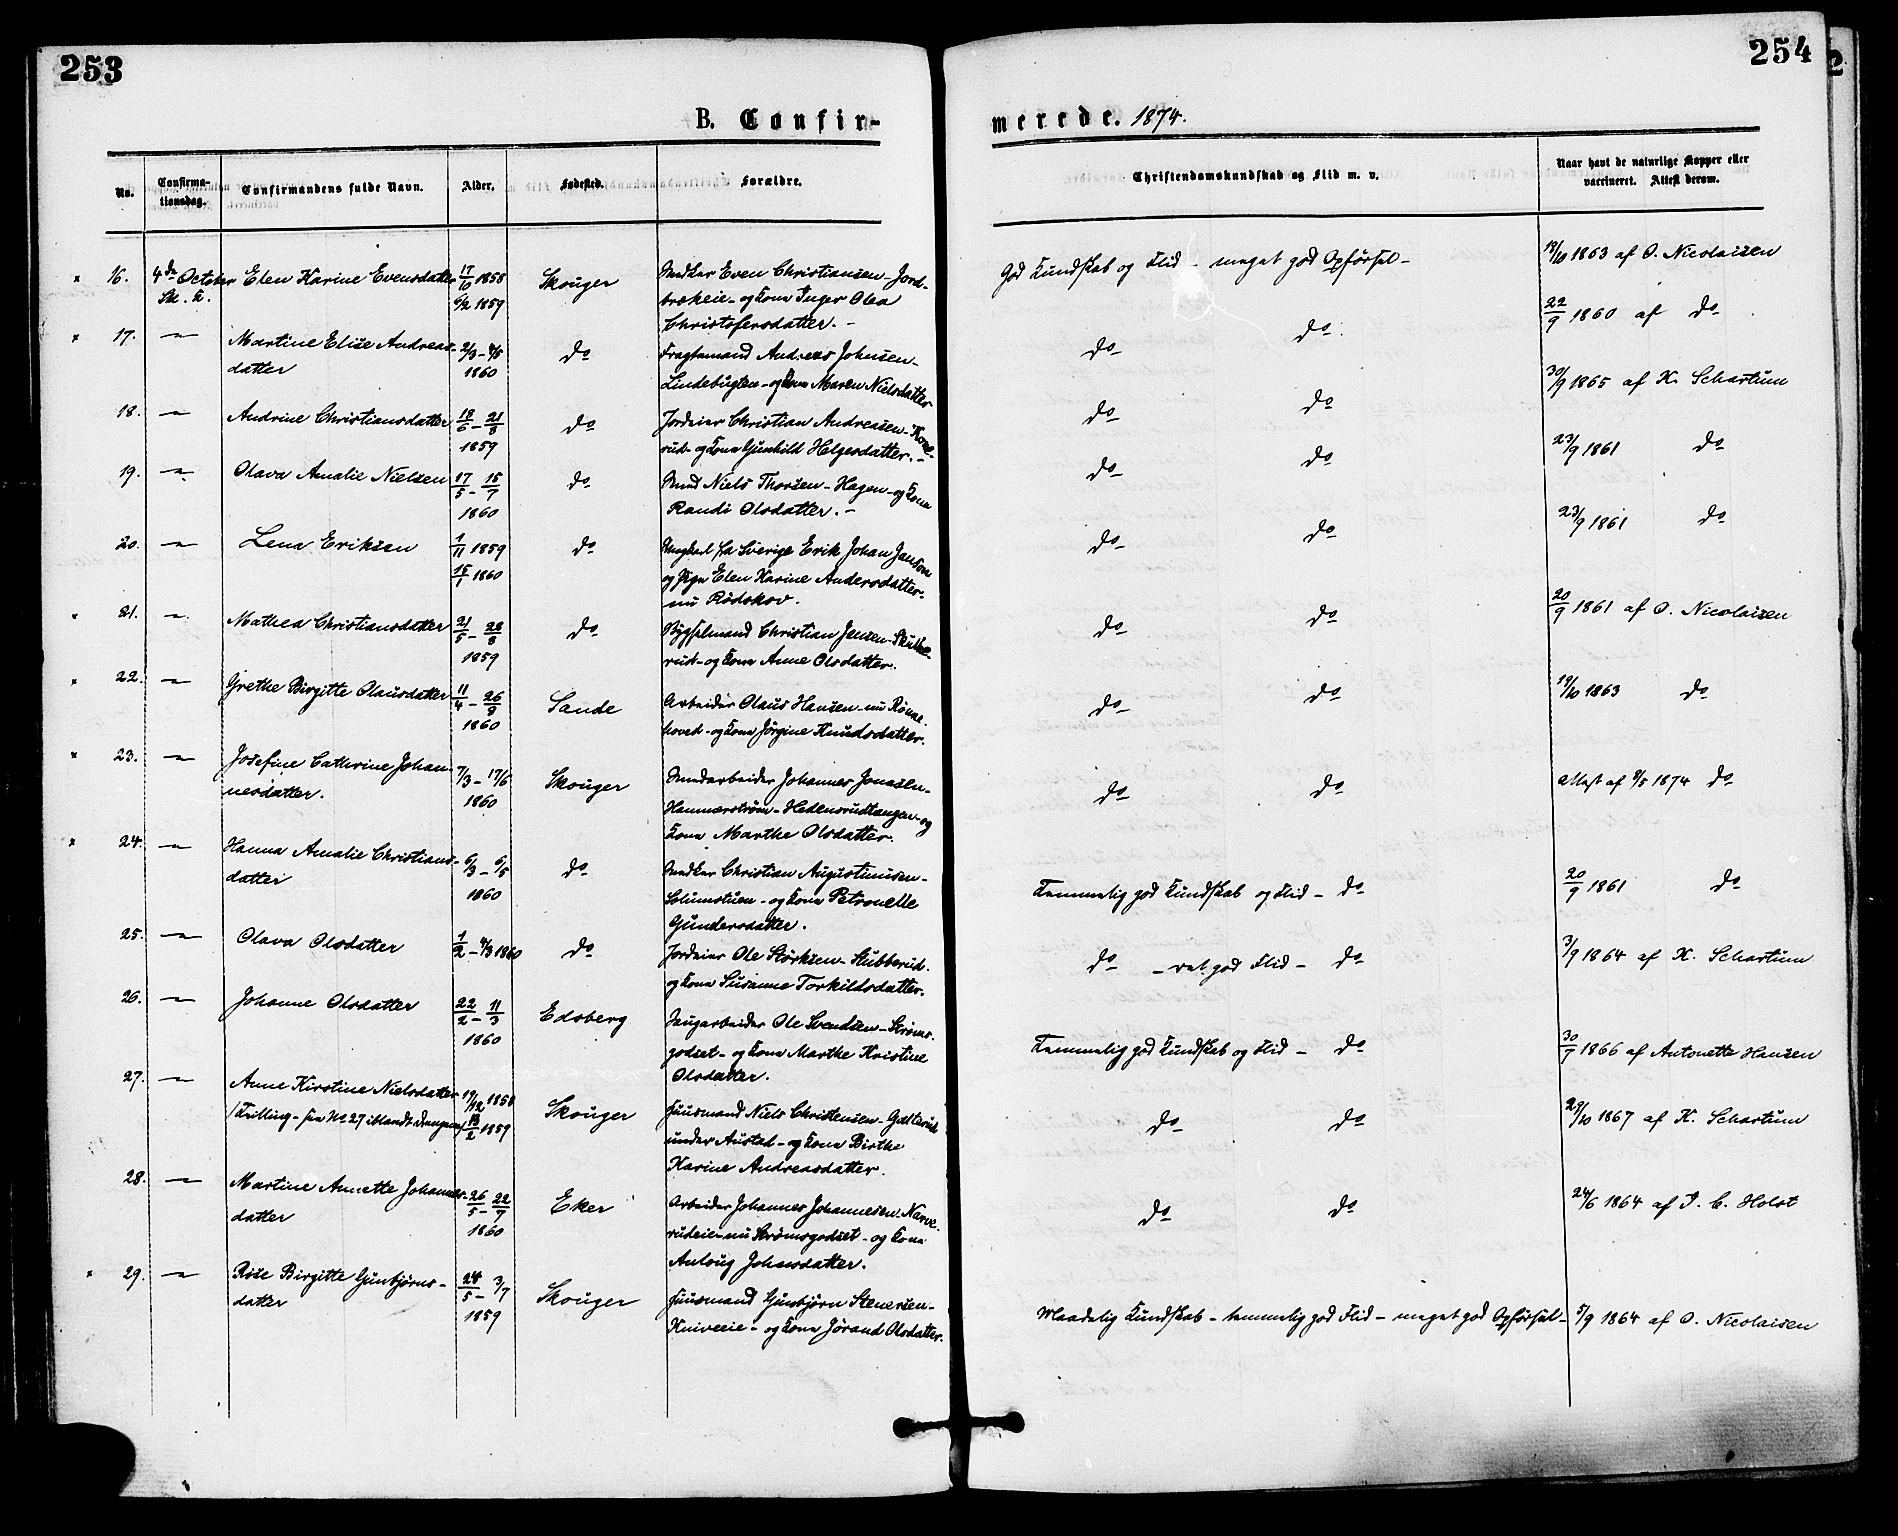 253
254
B. Confir-
merede. 1874.
No.
Confirma-
tionsdag.
Confirmandens fulde Navn.
Alder.
Fødested.
Forældre.
Christendomskundskab og Flid m. v.
Naar havt de naturlige Kopper eller
vaccineret. Attest derom.
16. 4de October Elen Karine Evensdatter 17/10 1858 Skouger Even Christiansen - Jord-
Sk. K. 6/2 1859 brekeie - og Kone Inger Olea
Christofersdatter. -
God Kundskab og Flid - meget god Opførsel - 13/10 1863 af O. Nicolaisen
17. — Martine Elise Andreas- 2/3 - 4/5 do Fragtemand Andreas Johnsen -
datter 1860 Lindebugten - og Kone Maren Nielsdatter
do do 22/9 1860 af do
18. — Andrine Christiansdatter 18/6 - 21/8 do Jordeier Christian Andreasen - Kone-
1859 rud - og Kone Gunhild Helgesdatter. -
do do 30/9 1865 af K. Schartum
19. — Olava Amalie Nielsen 17/5 - 15/7 do Niels Thorsen - Hagen - og Kone
1860 Randi Olsdatter. -
do do 23/9 1861 do
20. — Lena Eriksen 1/11 1859 do Ungkarl fra Sverige Erik Johan Janson
15/1 1860 og Pige Elen Karine Andersdatter -
nu Rødskov.
do do 23/9 1861 do
21. — Mathea Christiansdatter 21/5 - 28/8 do Bygselmand Christian Jensen - Skutke-
1859 rud - og Kone Anne Olsdatter.
do do 20/9 1861 af O. Nicolaisen
22. — Grethe Birgitte Olausdatter 11/4 - 26/9 Sande Arbeider Olaus Hansen - nu Rønne-
1860 hoved - og Kone Jørgine Knudsdatter.
do do 19/10 1863 do
23. — Josefine Cathrine Johan- 7/3 - 17/6 Skouger Johannes Jonassen -
nesdatter. 1860 Hammerstrøm - Hedensrudtangen - og
Kone Marthe Olsdatter.
do do Attest 9/5 1874 do
24. — Hanna Amalie Christians- 6/3 - 6/5 do Christian Augustinusen -
datter 1860 Solumstuen - og Kone Petronelle
Gundersdatter.
Temmelig god Kundskab og Flid - do 20/9 1861 do
25. — Olava Olsdatter 1/2 - 4/3 1860 do Jordeier Ole Størksen - Stubberud -
og Kone Susanne Torkildsdatter.
do - ret god Flid - do 3/9 1864 af K. Schartum
26. — Johanne Olsdatter 22/2 - 11/3 Edsberg Ole Svendsen - Strøms-
1860 godset - og Kone Marthe Kristine
Olsdatter.
Temmelig god Kundskab og Flid - do 30/7 1866 af Antonette Hansen
27. — Anne Kirstine Nielsdatter 19/12 1858 Skouger Huusmand Niels Christensen - Galterud
/Trilling - fra No 27 iblandt Drengene/ 13/2 1859 under Austad - og Kone Birthe
Karine Andreasdatter.
do do 29/10 1867 af K. Schartum
28. — Martine Annette Johannes- 26/5 - 22/7 Eker Arbeider Johannes Johannesen - Narve-
datter 1860 rudeie - nu Strømsgodset - og Kone
Anlaug Johnsdatter.
do do 24/6 1864 af J. C. Holst
29. — Rise Birgitte Gunbjørns- 24/5 - 3/7 Skouger Huusmand Gunbjørn Stenersen -
datter 1859 Kniveeie - og Kone Jørand Olsdatter.
Maadelig Kundskab - temmelig god Flid - meget god Opførsel - 5/9 1864 af O. Nicolaisen